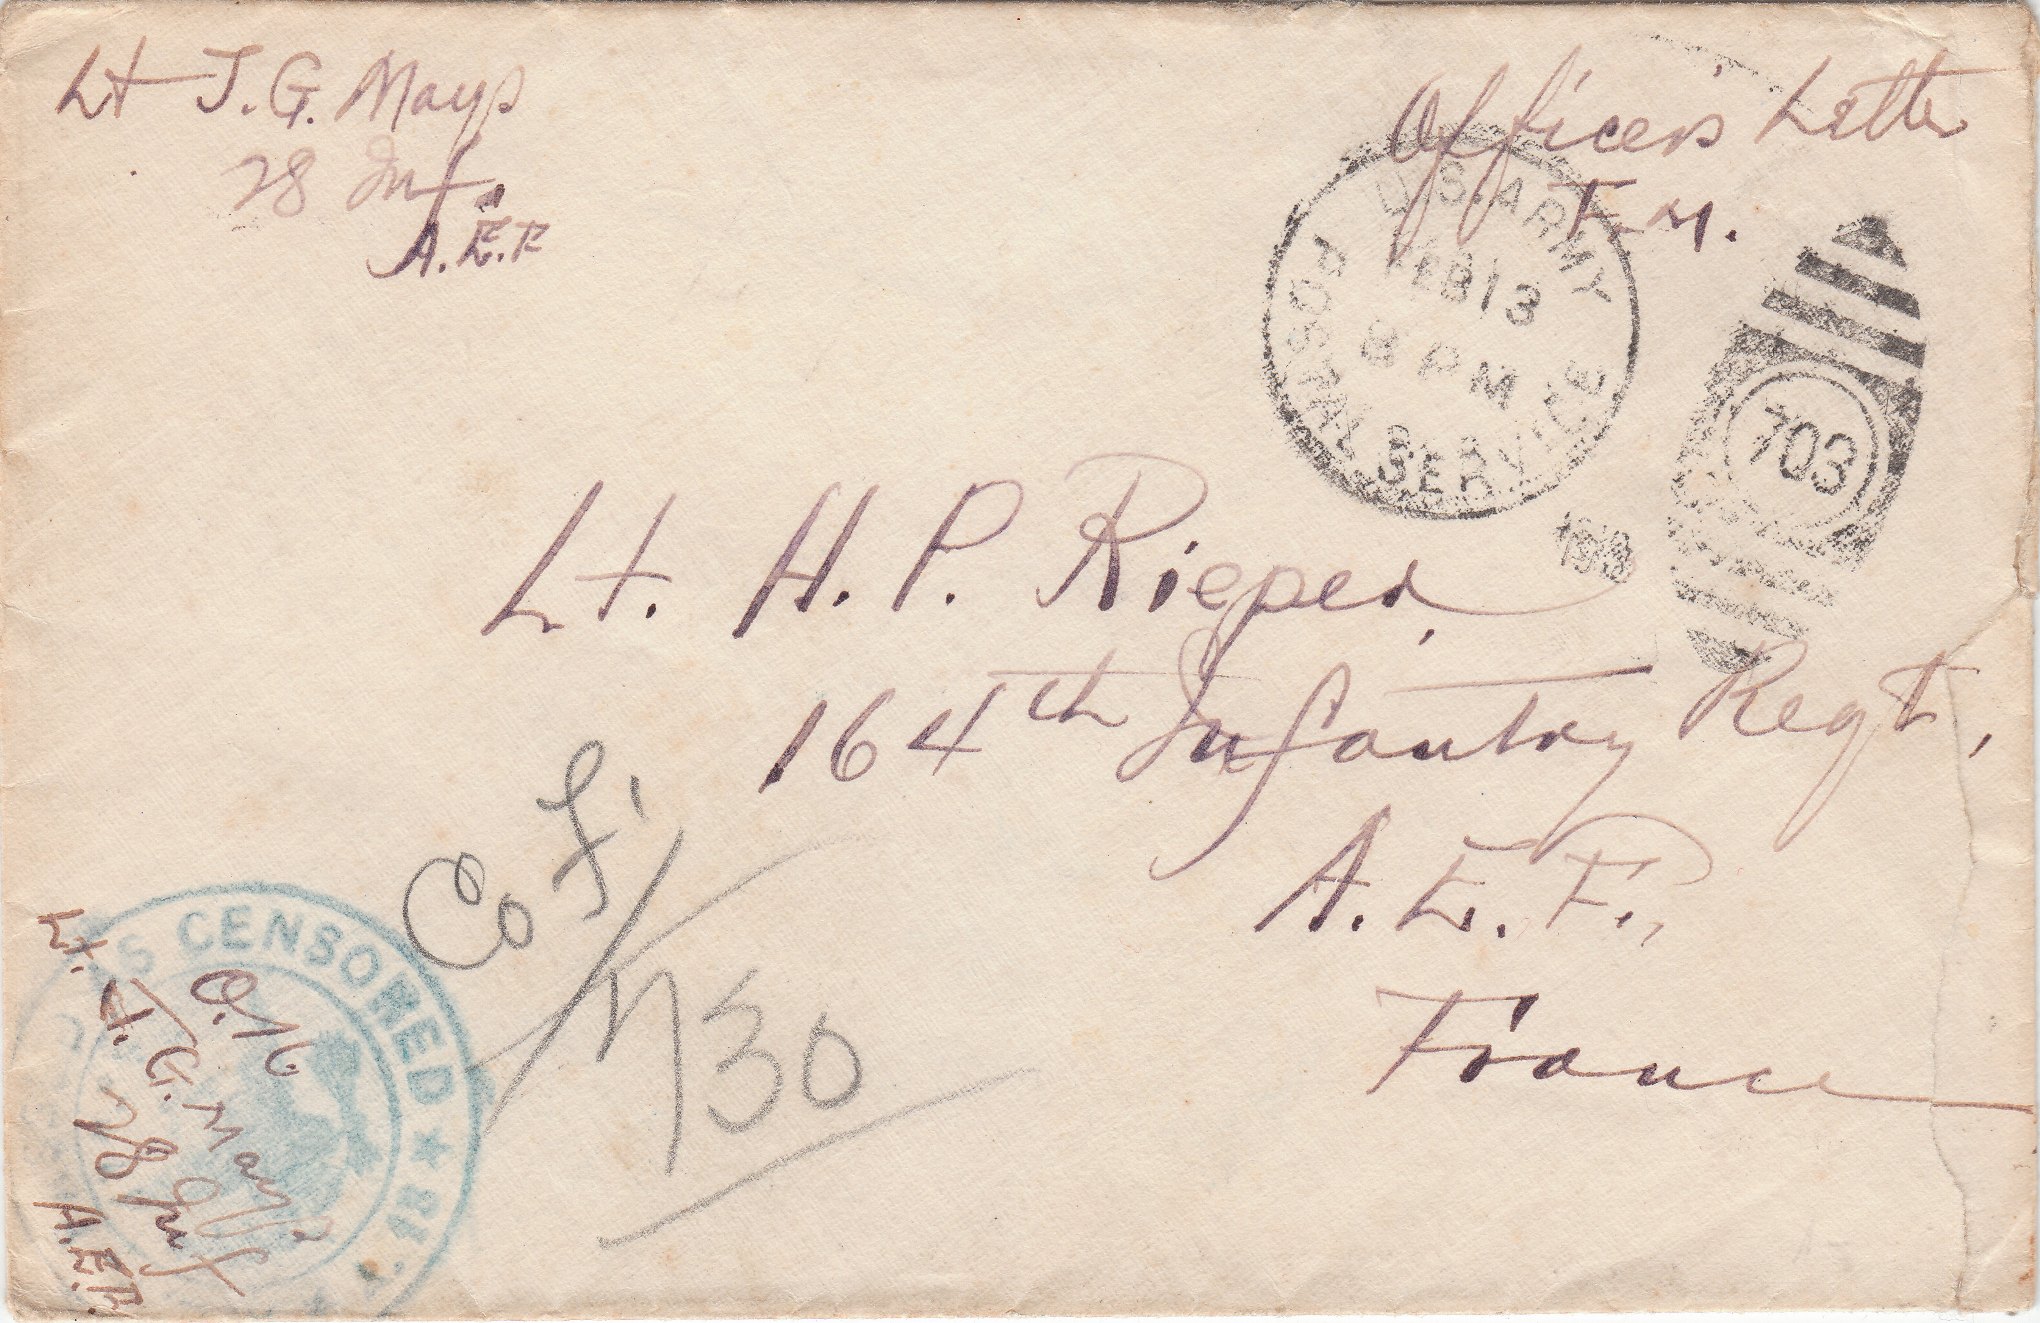 Lt J. G. Mays
28 Inf.
A.E.F
Officer's Letter
F.M.
U.S. ARMY
POSTAL SERVICE
FEB 13
8 PM
1918
703
Lt. H. P. Rieper,
164th Infantry Regt,
A. E. F.,
France
Co F,
730
CENSORED ★
O.K.
Lt. J. G. Mays
28 Inf
A.E.F.